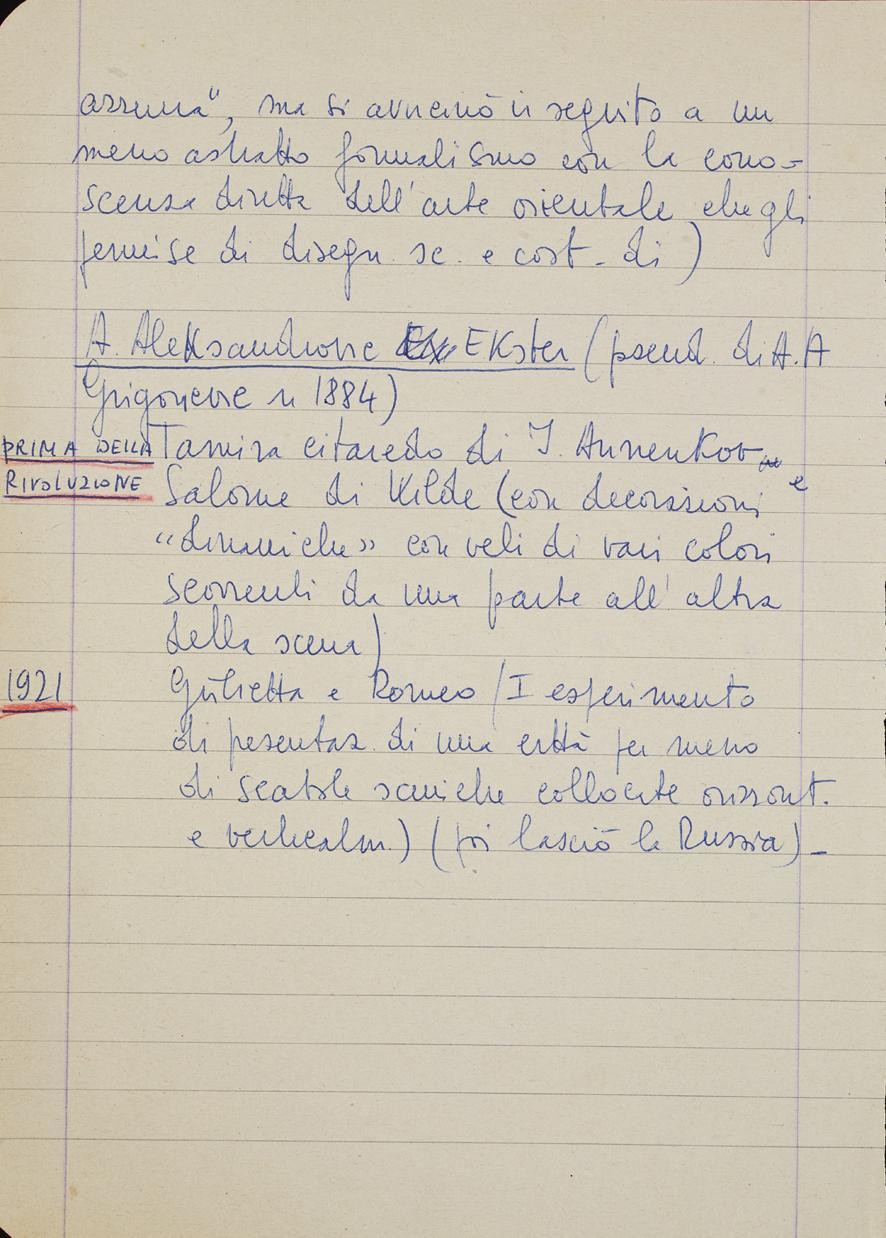 azzurra", ma si avvicinò in seguito a un
meno astratto formalismo con la cono-
scenza diretta dell'arte orientale che gli
fornì se di disegn sc. e cost. di )
A. Aleksandrovne Ekster (pseud. di A. A
Grigorievne n 1884)
PRIMA DELLA Tamira citaredo di I. Annenkov e
RIVOLUZIONE Salome di Wilde (con decorazioni
"dinamiche" con veli di vari colori
scorrenti da una parte all'altra
della scena)
1921 Giulietta e Romeo (I esperimento
di presentaz. di una città per mezzo
di scatole sceniche collocate orizzont.
e verticalm.) (poi lasciò la Russia) -